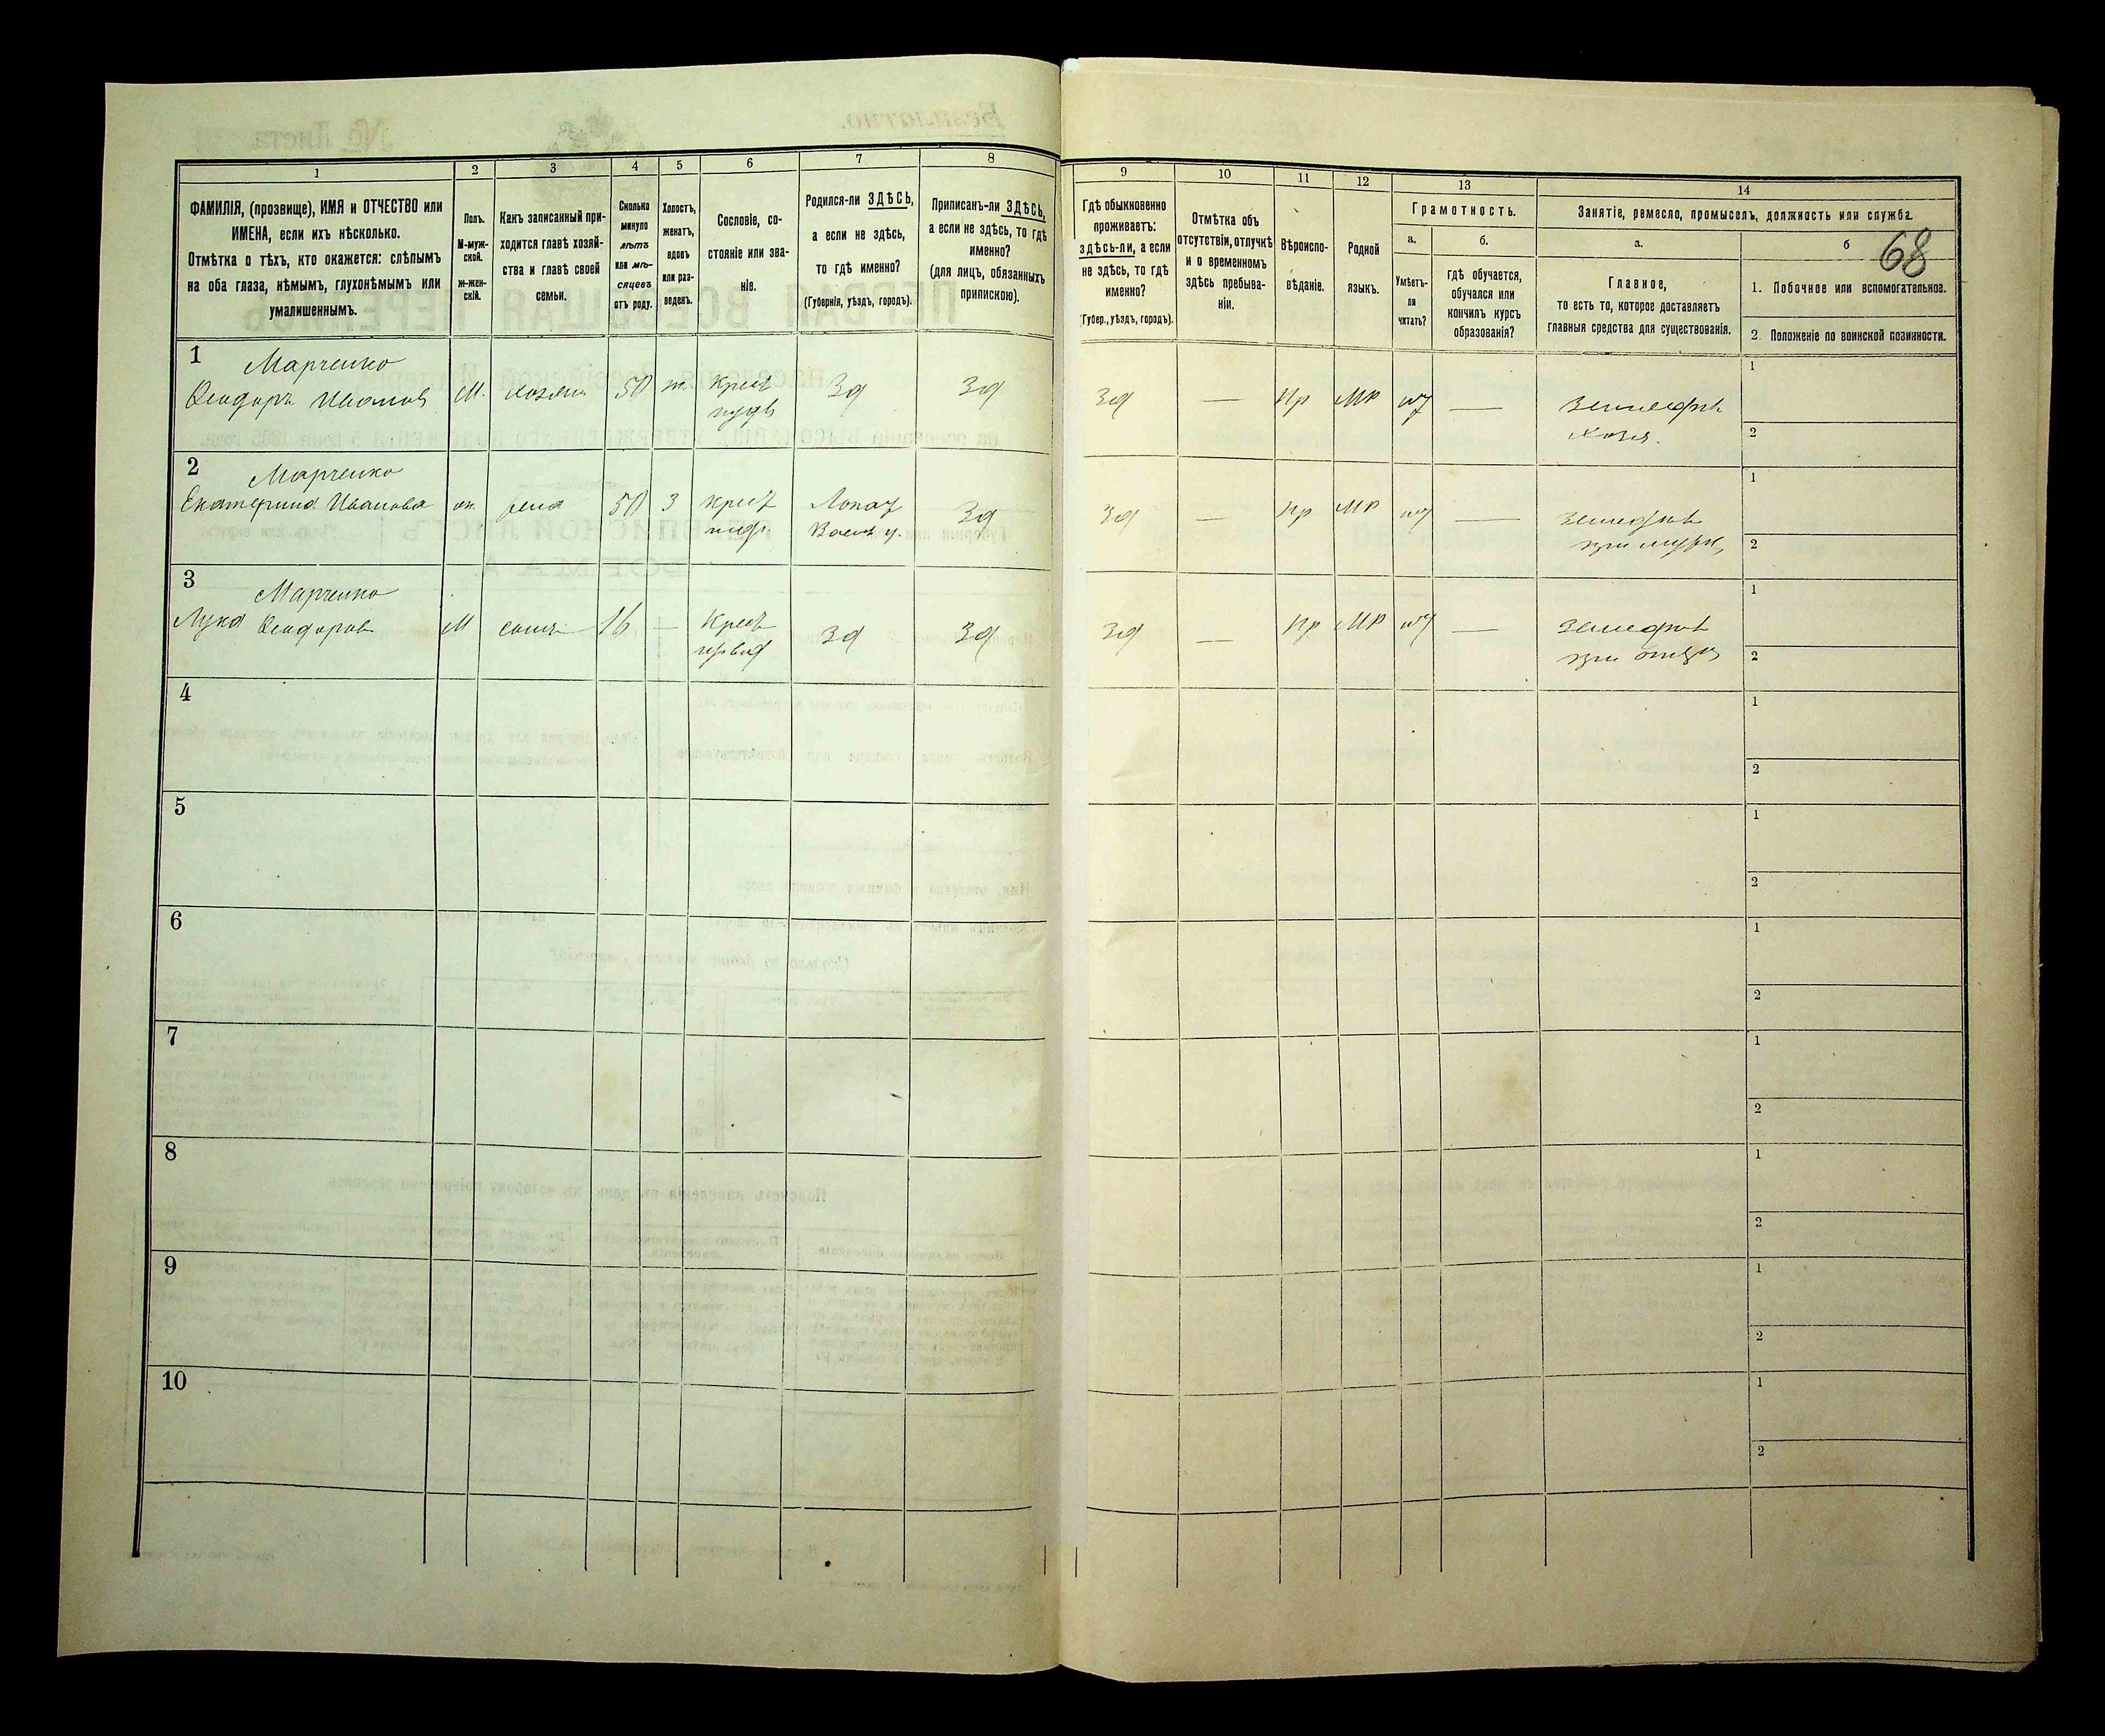 1 2 3 4 5 6 7 8
ФАМИЛІЯ, (прозвище), ИМЯ и ОТЧЕСТВО или
ИМЕНА, если ихъ нѣсколько.
Отмѣтка о тѣхъ, кто окажется: слѣпымъ
на оба глаза, нѣмымъ, глухонѣмымъ или
умалишеннымъ.
Полъ.
М-муж-
ской.
ж-жен-
скій.
Какъ записанный при-
ходится главѣ хозяй-
ства и главѣ своей
семьи.
Сколько
минуло
лѣтъ
или мѣ-
сяцевъ
отъ роду.
Холостъ,
женатъ,
вдовъ
или раз-
веденъ.
Сословіе, со-
стояніе или зва-
ніе.
Родился-ли ЗДѢСЬ,
а если не здѣсь,
то гдѣ именно?
(Губернія, уѣздъ, городъ).
Приписанъ-ли ЗДѢСЬ,
а если не здѣсь, то гдѣ
именно?
(для лицъ, обязанныхъ
припискою).
9 10 11 12 13 14
Гдѣ обыкновенно
проживаетъ:
здѣсь-ли, а если
не здѣсь, то гдѣ
именно?
(Губер., уѣздъ, городъ).
Отмѣтка объ
отсутствіи, отлучкѣ
и о временномъ
здѣсь пребыва-
ніи.
Вѣроиспо-
вѣданіе.
Родной
языкъ.
Грамотность.
а.
Умѣетъ-
ли
читать?
б.
гдѣ обучается,
обучался или
кончилъ курсъ
образованія?
Занятіе, ремесло, промыселъ, должность или служба.
а.
Главное,
то есть то, которое доставляетъ
главныя средства для существованія.
б
68
1. Побочное или вспомогательное.
2. Положеніе по воинской повинности.
1 Марченко
Ѳеодоръ Иванов М. хозяин 50 ж. Крест Зд Зд Зд — Пр МР — Земледѣл
хозя.
1
2
2 Марченко
Екатерина Иванова ж. жена 50 З крест Зд Зд — Пр МР — Земледѣл
при мужѣ
1
2
3 Марченко
Лука Ѳеодоров М сынъ 16 — Крест Зд Зд Зд — Пр МР — Земледѣл
при отцѣ
1
2
4
1
2
5
1
2
6
1
2
7
1
2
8
1
2
9
1
2
10
1
2